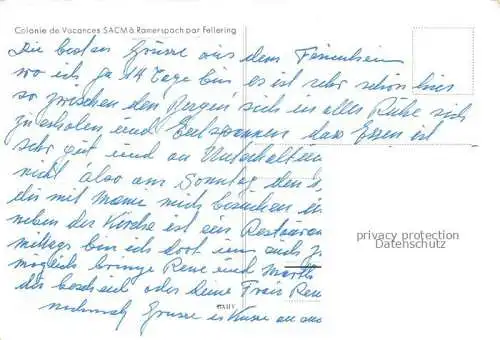 Colonie de Vacances SACM à Ramerspach par Fellering
Die besten Grüsse aus dem Ferienheim
wo ich ja 14 Tage bin es ist sehr schön hier
so zwischen den Bergen sich in aller Ruhe sich
zu erholen und Entspannen das Essen ist
sehr gut und an Unterhaltun
nicht also am Sonntag den
du mit Mame mich besuchen
neben der Kirche ist ein Restauran
mittags bin ich dort um euch z
möglich bringe Rene und Marth
das bescheid oder deine Frau Ren
nochmals Grüsse u Küsse an
privacy protection
Datenschutz